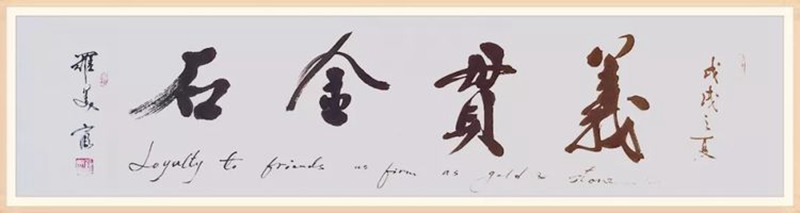 戊戌之夏
義貫金石
Loyalty to friends as firm as gold & stone
羅美富